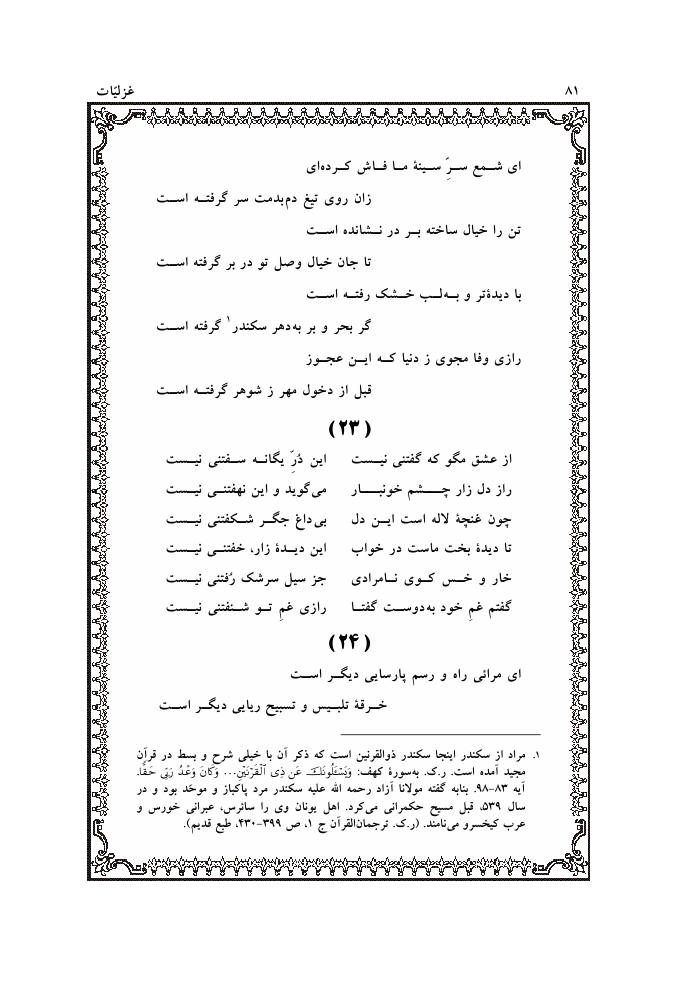 ۸۱ غزلیّات
ای شمع سرِّ سینهٔ ما فاش کرده‌ای
زان روی تیغ دم‌بدمت سر گرفته است
تن را خیال ساخته بر در نشانده است
تا جان خیال وصل تو در بر گرفته است
با دیدهٔ‌تر و به‌لب خشک رفته است
گر بحر و بر به‌دهر سکندر۱ گرفته است
رازی وفا مجوی ز دنیا که این عجوز
قبل از دخول مهر ز شوهر گرفته است
(۲۳)
از عشق مگو که گفتنی نیست این دُرِّ یگانه سفتنی نیست
راز دل زار چشم خونبار می‌گوید و این نهفتنی نیست
چون غنچهٔ لاله است این دل بی‌داغ جگر شکفتنی نیست
تا دیدهٔ بخت ماست در خواب این دیدهٔ زار، خفتنی نیست
خار و خس کوی نامرادی جز سیل سرشک رُفتنی نیست
گفتم غمِ خود به‌دوست گفتا رازی غمِ تو شنفتنی نیست
(۲۴)
ای مرائی راه و رسم پارسایی دیگر است
خرقهٔ تلبیس و تسبیح ریایی دیگر است
۱. مراد از سکندر اینجا سکندر ذوالقرنین است که ذکر آن با خیلی شرح و بسط در قرآن
مجید آمده است. ر.ک. به‌سورهٔ کهف: وَيَسْـَٔلُونَكَ عَن ذِى ٱلْقَرْنَيْنِ... وَكَانَ وَعْدُ رَبِّى حَقًّا.
آیه ۸۳-۹۸. بنابه گفته مولانا آزاد رحمه الله علیه سکندر مرد پاکباز و موحّد بود و در
سال ۵۳۹، قبل مسیح حکمرانی می‌کرد. اهل یونان وی را سائرس، عبرانی خورس و
عرب کیخسرو می‌نامند. (ر.ک. ترجمان‌القرآن ج ۱، ص ۳۹۹-۴۳۰، طبع قدیم).